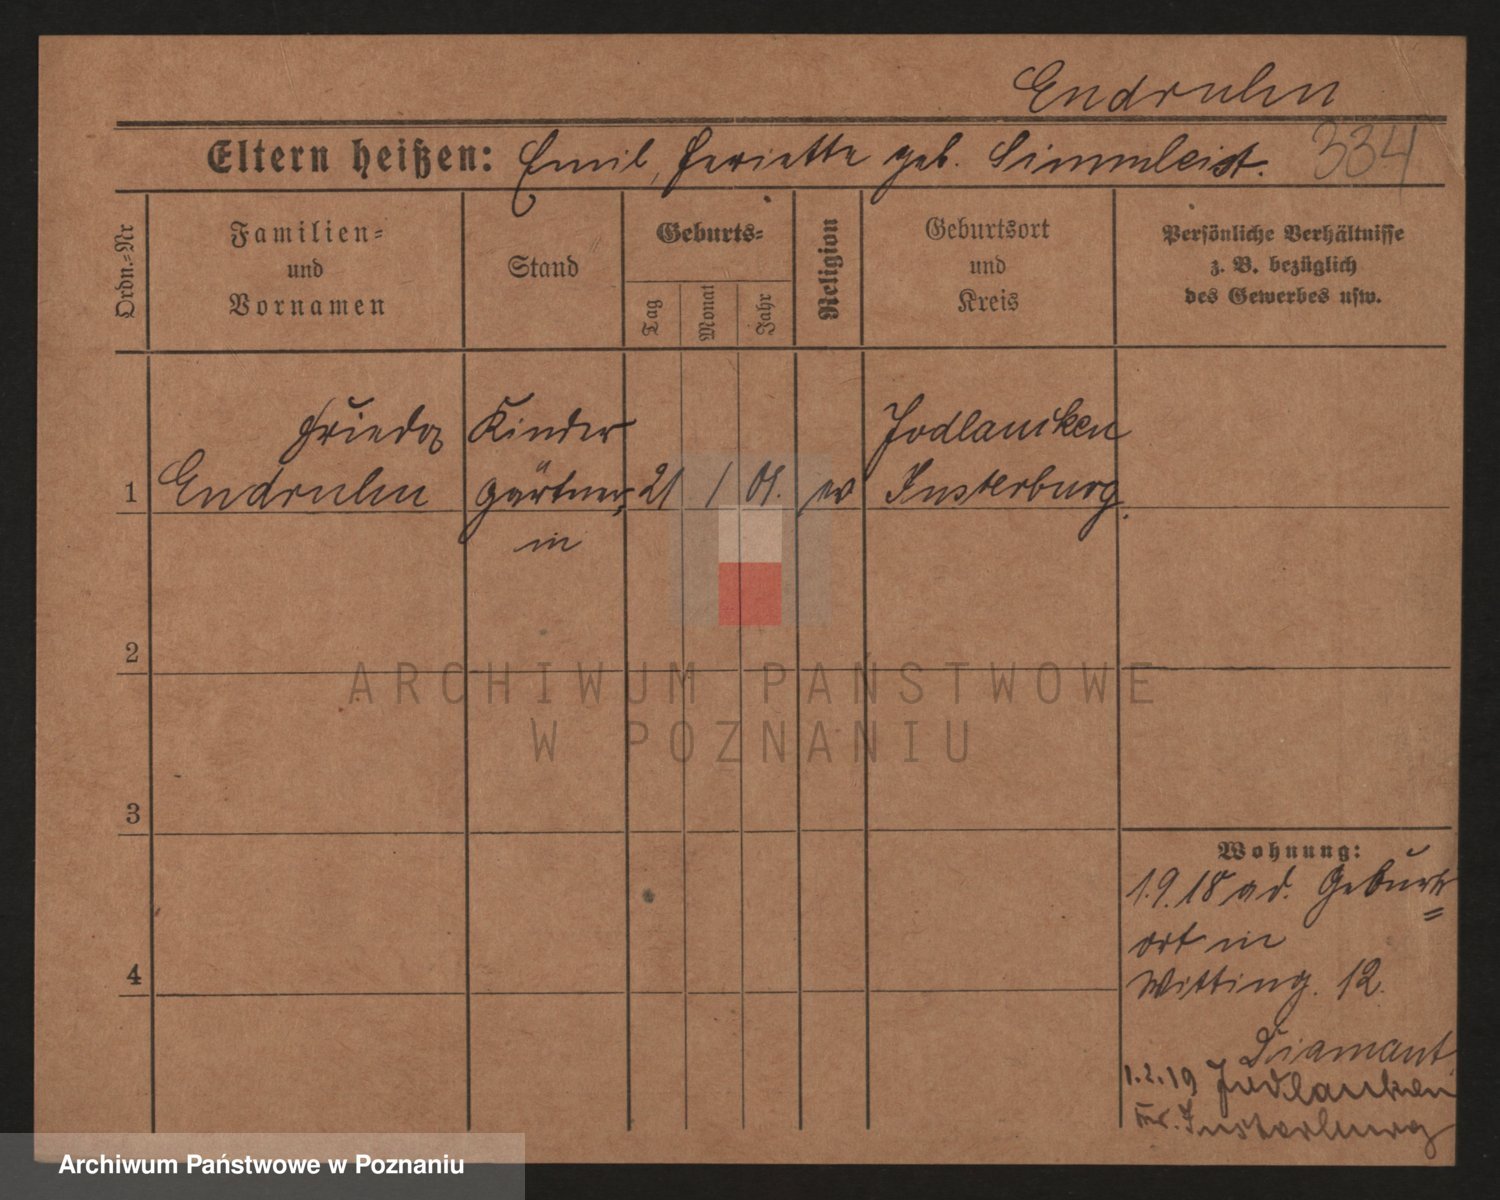 Endruhn
Eltern heißen: Emil, Heriette geb. Simmleist.
334
Ordn.=Nr
Familien=
und
Vornamen
Stand
Geburts=
Tag
Monat
Jahr
Religion
Geburtsort
und
Kreis
Persönliche Verhältnisse
z. B. bezüglich
des Gewerbes usw.
Frieda Kinder Jodlaucken
1 Endruhn gärtner, 21 1 01. ev Insterburg.
in
2
ARCHIWUM PAŃSTWOWE
W POZNANIU
3
4
Wohnung:
1.9.18 a d. Geburts=
ort in
Witting. 12.
Diamant
1.2.19 Jodlauken
Kr. Insterburg
Archiwum Państwowe w Poznaniu